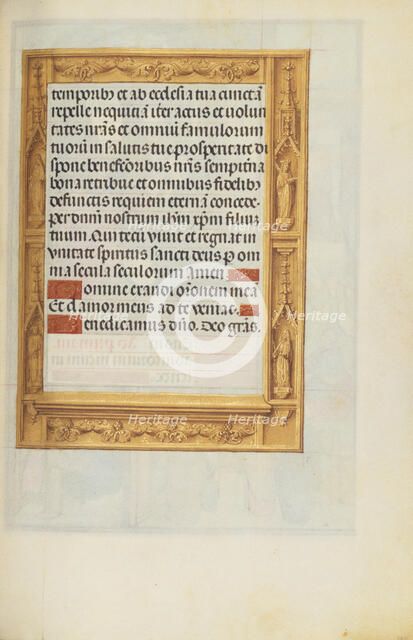 temporibꝰ et ab ecclesia tua cunctā
repelle nequitiā iter actus et volun
tates nr̄as et omniū famulorum
tuorū in salutis tue prosperitate di
spone benefcōribus nr̄is sempitn̄a
bona retribue et omnibus fidelibꝰ
defunctis requiem eternā concede.
per dnm̄ nostrum ihm̄ xpm̄ filiū
tuum. Qui tecū viuit et regnat in
vnitate spiritus sancti deus p om
nia secula seculorum Amen
omine exaudi orōnem mea
Et clamor meus ad te veniat.
enedicamus dn̄o. Deo grās.
Heritage
Heritage
Heritage
Heritage
Heritage
Heritage
Heritage
Heritage